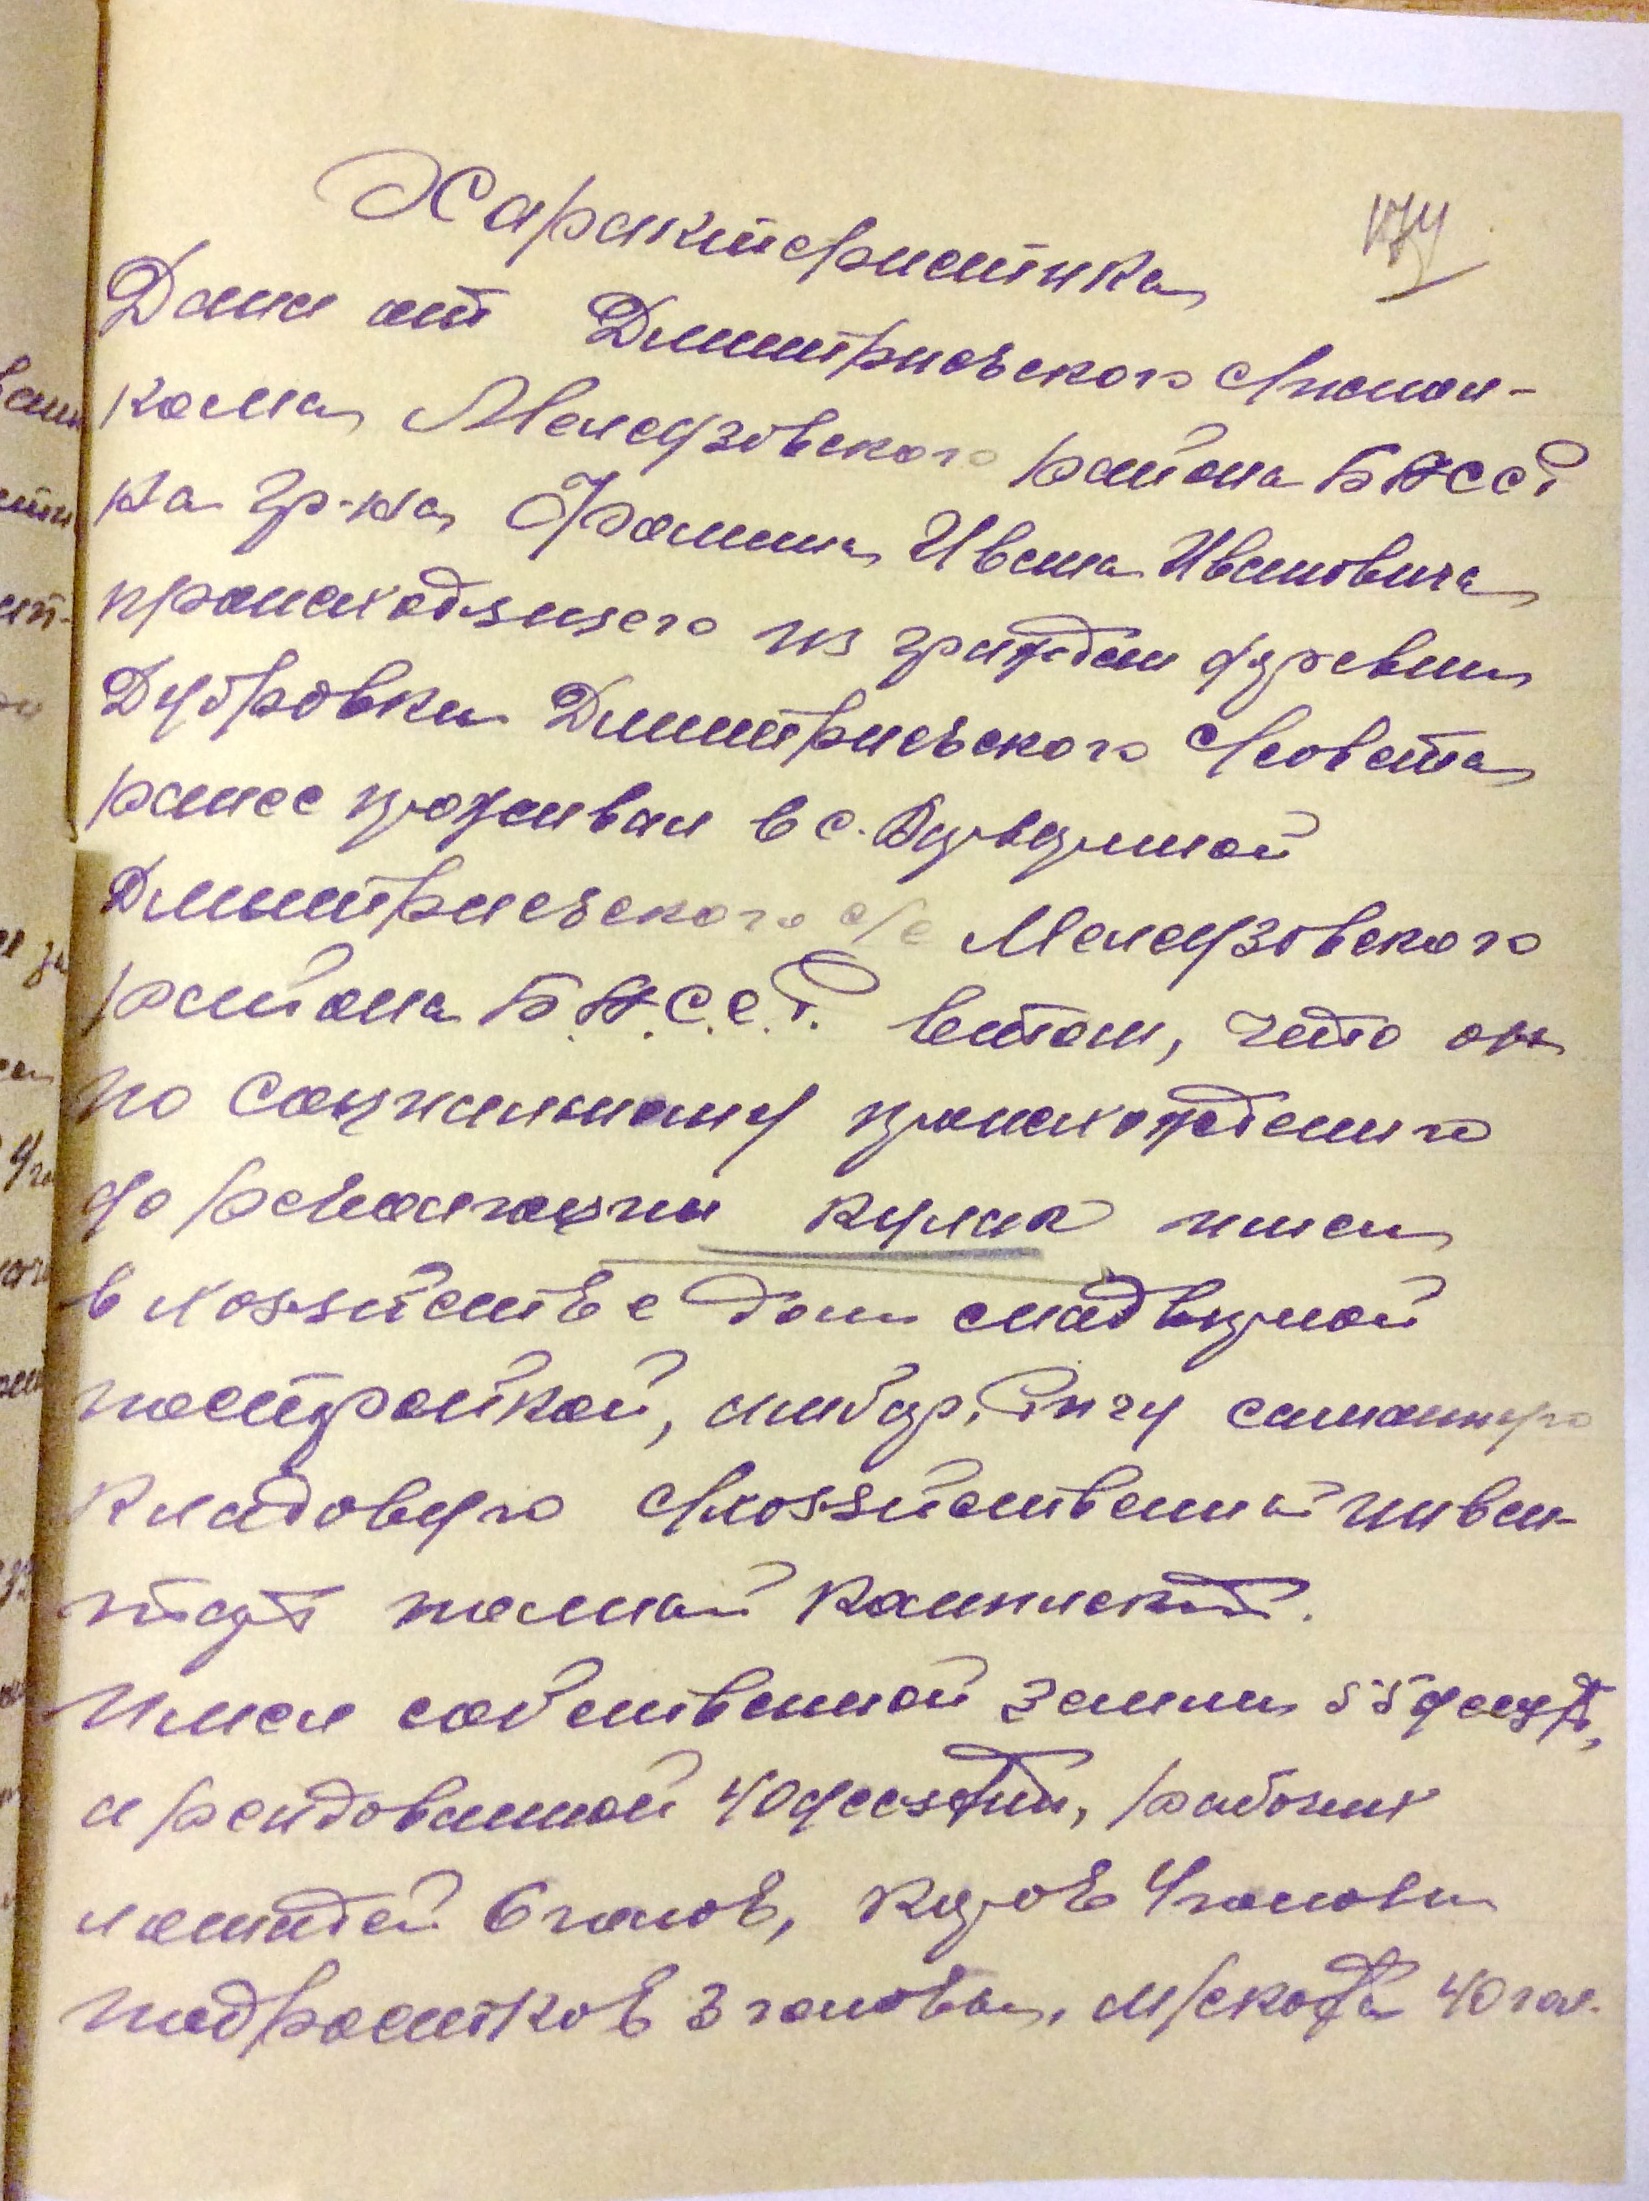 Характеристика
174
Дана от Дмитриевского с/испол-
кома Мелеузовского района БАССР
на гр-на Фомина Ивана Ивановича
происходящего из граждан деревни
Дубровки Дмитриевского с/совета
ранее проживал в с.
Дмитриевского с/с Мелеузовского
района Б.А.С.С.Р. втом, что он
по социальному происхождению
до революции кулак имел
в хозяйстве дом снадворной
постройкой, амбар, Ригу саманную
кладовую с/хозяйственный инвен-
тарь полной комплект.
Имел собственной земли 55 десят,
арендованной 40 десятин, рабочих
лошадей 6 голов, коров 4 головы
подростков 3 головы, м/скота 40 гол.